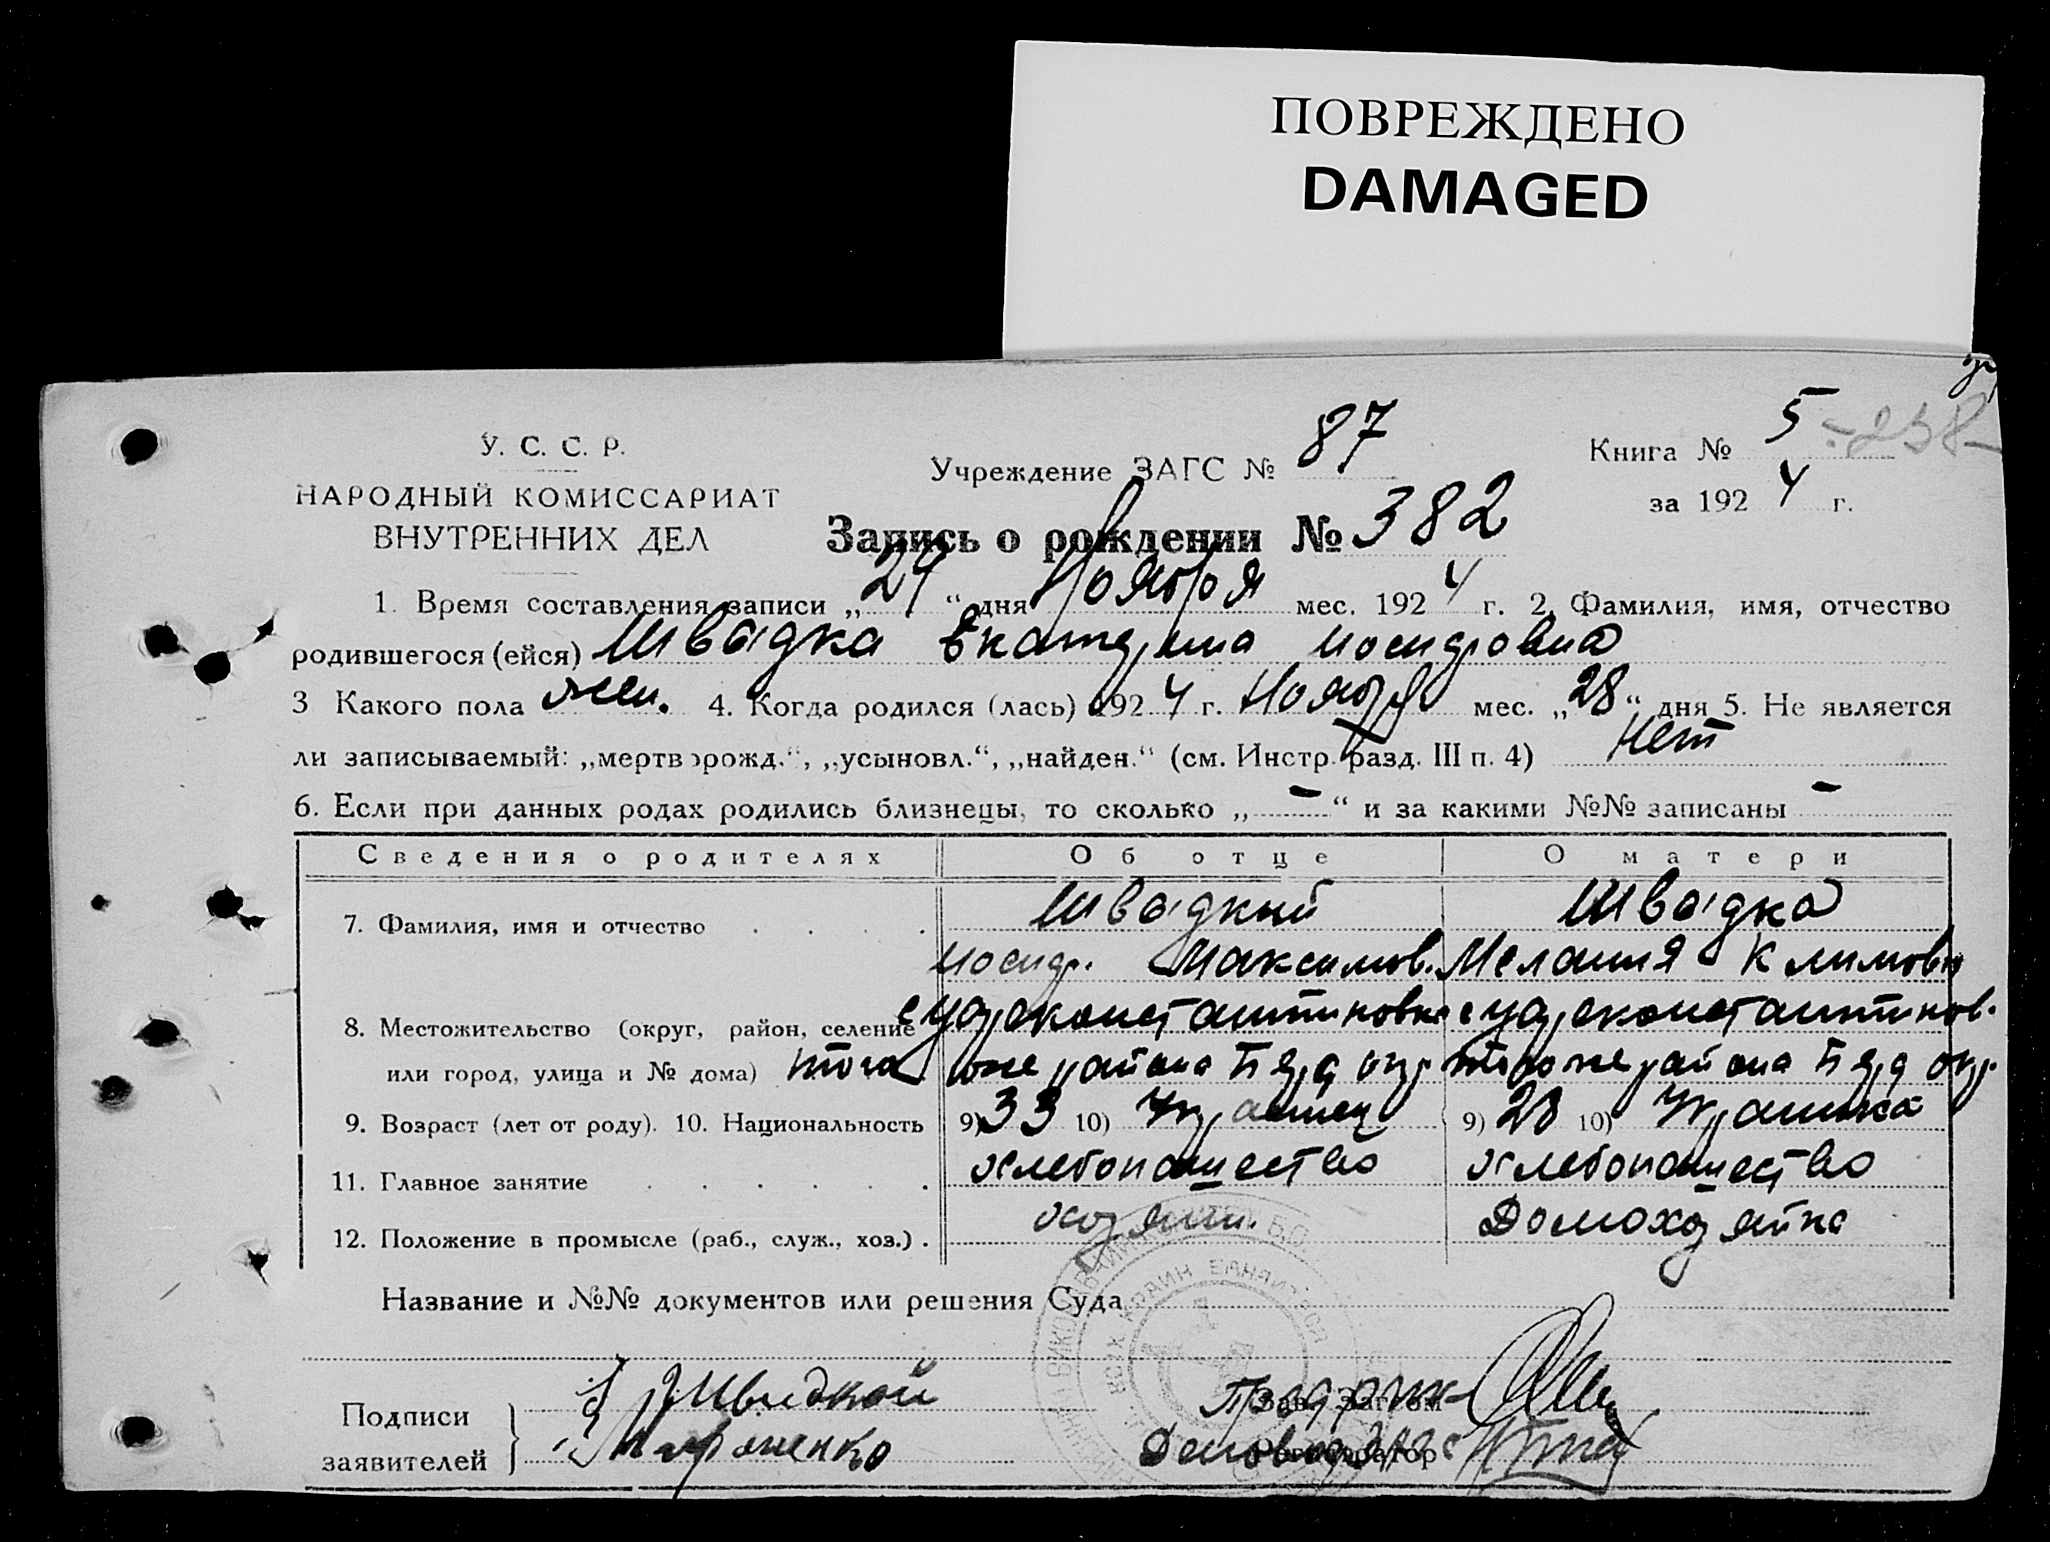 ПОВРЕЖДЕНО
DAMAGED
У. С. С. Р.
НАРОДНЫЙ КОМИССАРИАТ
ВНУТРЕННИХ ДЕЛ
Учреждение ЗАГС № 87
Книга № 5
за 1924 г.
Запись о рождении № 382
1. Время составления записи „24“ дня Ноября мес. 1924 г. 2. Фамилия, имя, отчество
родившегося (ейся) Швидка Екатерина
3 Какого пола жен. 4. Когда родился (лась) 1924 г. Ноября мес. „28“ дня 5. Не является
ли записываемый: „мертворожд.“, „усыновл.“, „найден.“ (см. Инстр. разд. III п. 4) Нет
6. Если при данных родах родились близнецы, то сколько „ – “ и за какими №№ записаны –
Сведения о родителях Об отце О матери
7. Фамилия, имя и отчество Швидкий Швидка
Максимов. Мелания Климовн
8. Местожительство (округ, район, селение
или город, улица и № дома) того же района Берд окр. того же района Берд окр.
9. Возраст (лет от роду). 10. Национальность 9) 33 10) Украинец 9) 28 10) Украинка
11. Главное занятие хлебопашество хлебопашество
12. Положение в промысле (раб., служ., хоз.) хозяин. Домохозяйка
Название и №№ документов или решения Суда
Подписи
заявителей
Швидкой
Зав. Загсом
Регистратор